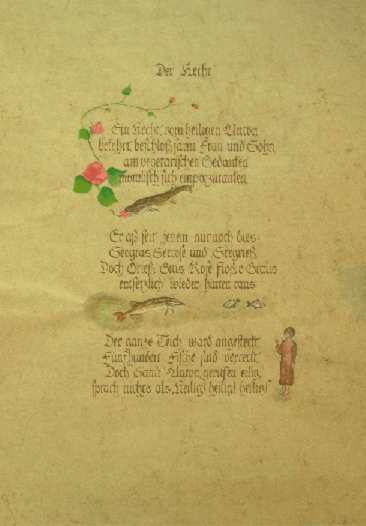 Der Hecht
Ein Hecht, vom heiligen Anton
bekehrt, beschloß, samt Frau und Sohn,
am vegetarischen Gedanken
moralisch sich emporzuranken.
Er aß seit jenem nur noch dies:
Seegras, Seerose und Seegrieß.
Doch Grieß, Gras, Rose floß, o Graus,
entsetzlich wieder hinten aus.
Der ganze Teich ward angesteckt.
Fünfhundert Fische sind verreckt.
Doch Sankt Anton, gerufen eilig,
sprach nichts als: Heilig! heilig! heilig!